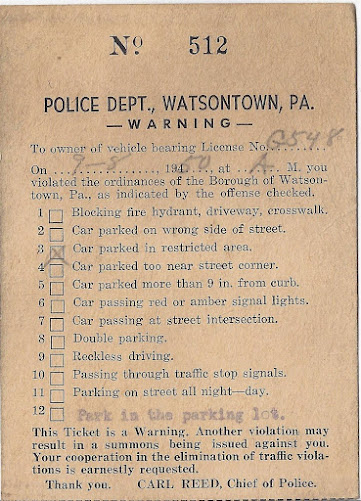 Nº 512
POLICE DEPT., WATSONTOWN, PA.
— WARNING —
To owner of vehicle bearing License No. G548
On 9-8, 1940 50 at A. M. you
violated the ordinances of the Borough of Watson-
town, Pa., as indicated by the offense checked.
1 Blocking fire hydrant, driveway, crosswalk.
2 Car parked on wrong side of street.
3 Car parked in restricted area.
4 Car parked too near street corner.
5 Car parked more than 9 in. from curb.
6 Car passing red or amber signal lights.
7 Car passing at street intersection.
8 Double parking.
9 Reckless driving.
10 Passing through traffic stop signals.
11 Parking on street all night—day.
12 Park in the parking lot.
This Ticket is a Warning. Another violation may
result in a summons being issued against you.
Your cooperation in the elimination of traffic viola-
tions is earnestly requested.
Thank you. CARL REED, Chief of Police.